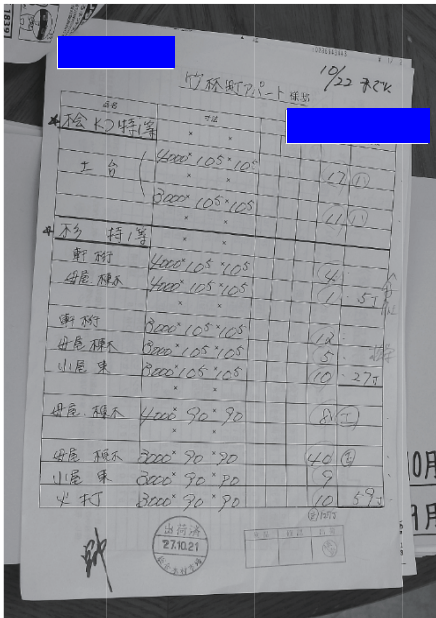 1839
竹林町アパート 様邸
10/22 まで
品名 寸法
桧KD特1等
土台 4000×105×105 17
3000×105×105 11
杉 特1等
軒桁 4000×105×105 4
母屋 棟木 4000×105×105 1 5丁
軒桁 3000×105×105 12
母屋 棟木 3000×105×105 5
小屋束 3000×105×105 10 27丁
母屋 棟木 4000×90×90 8
母屋 棟木 3000×90×90 40
小屋束 3000×90×90 9
火打 3000×90×90 10 59丁
出荷済
27.10.21
10月
9月